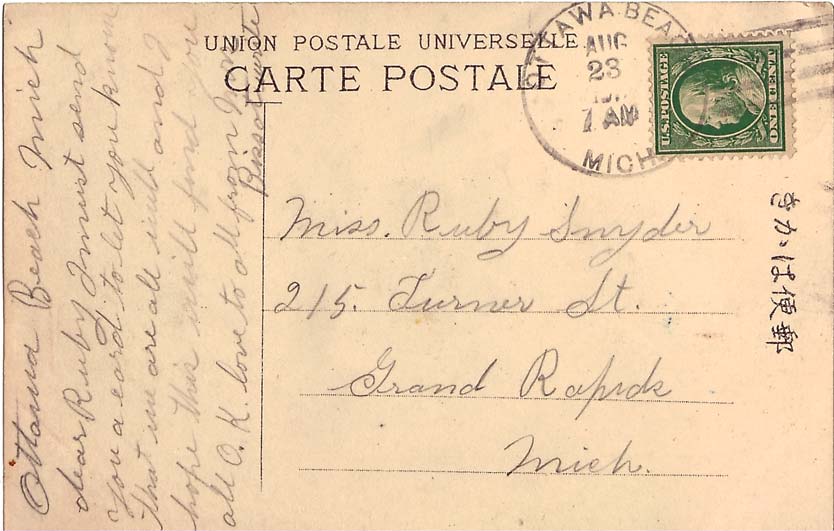 UNION POSTALE UNIVERSELLE.
CARTE POSTALE
OTTAWA BEACH
AUG
23
7 AM
MICH
U.S. POSTAGE
ONE CENT
Ottawa Beach Mich
dear Ruby I must send
you a card to let you know
that we are all well and I
hope this will find you
all O.K. love to all from
Miss. Ruby Snyder
215. Turner St.
Grand Rapids
Mich.
郵便はかき